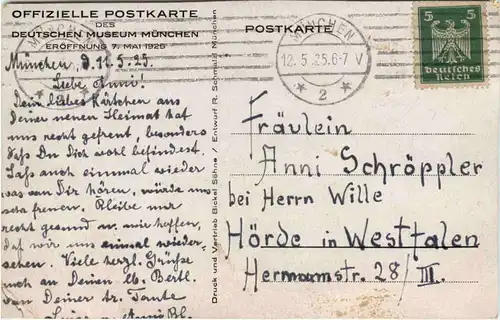 OFFIZIELLE POSTKARTE
DES
DEUTSCHEN MUSEUM MÜNCHEN
ERÖFFNUNG 7. MAI 1925
München, d. 11.5.25.
Liebe Anni!
Dein liebes Kärtchen aus
Deiner neuen Heimat hat
uns recht gefreut, besonders
daß Du Dich wohl befindest.
Laß auch einmal wieder
was von Dir hören, würde uns
sehr freuen. Bleibe nur
recht gesund u. wir hoffen,
daß wir uns einmal wieder-
sehen. Viele herzl. Grüße
auch an Deinen lb. Bertl.
von Deiner tr. Tante
Druck und Vertrieb Bickel Söhne / Entwurf R. Schmidt München
POSTKARTE
MÜNCHEN
12.5.25.6-7 V
* 2 *
5 5
Deutsches
Reich
Fräulein
Anni Schröppler
bei Herrn Wille
Hörde in Westfalen
Hermannstr. 28/III.